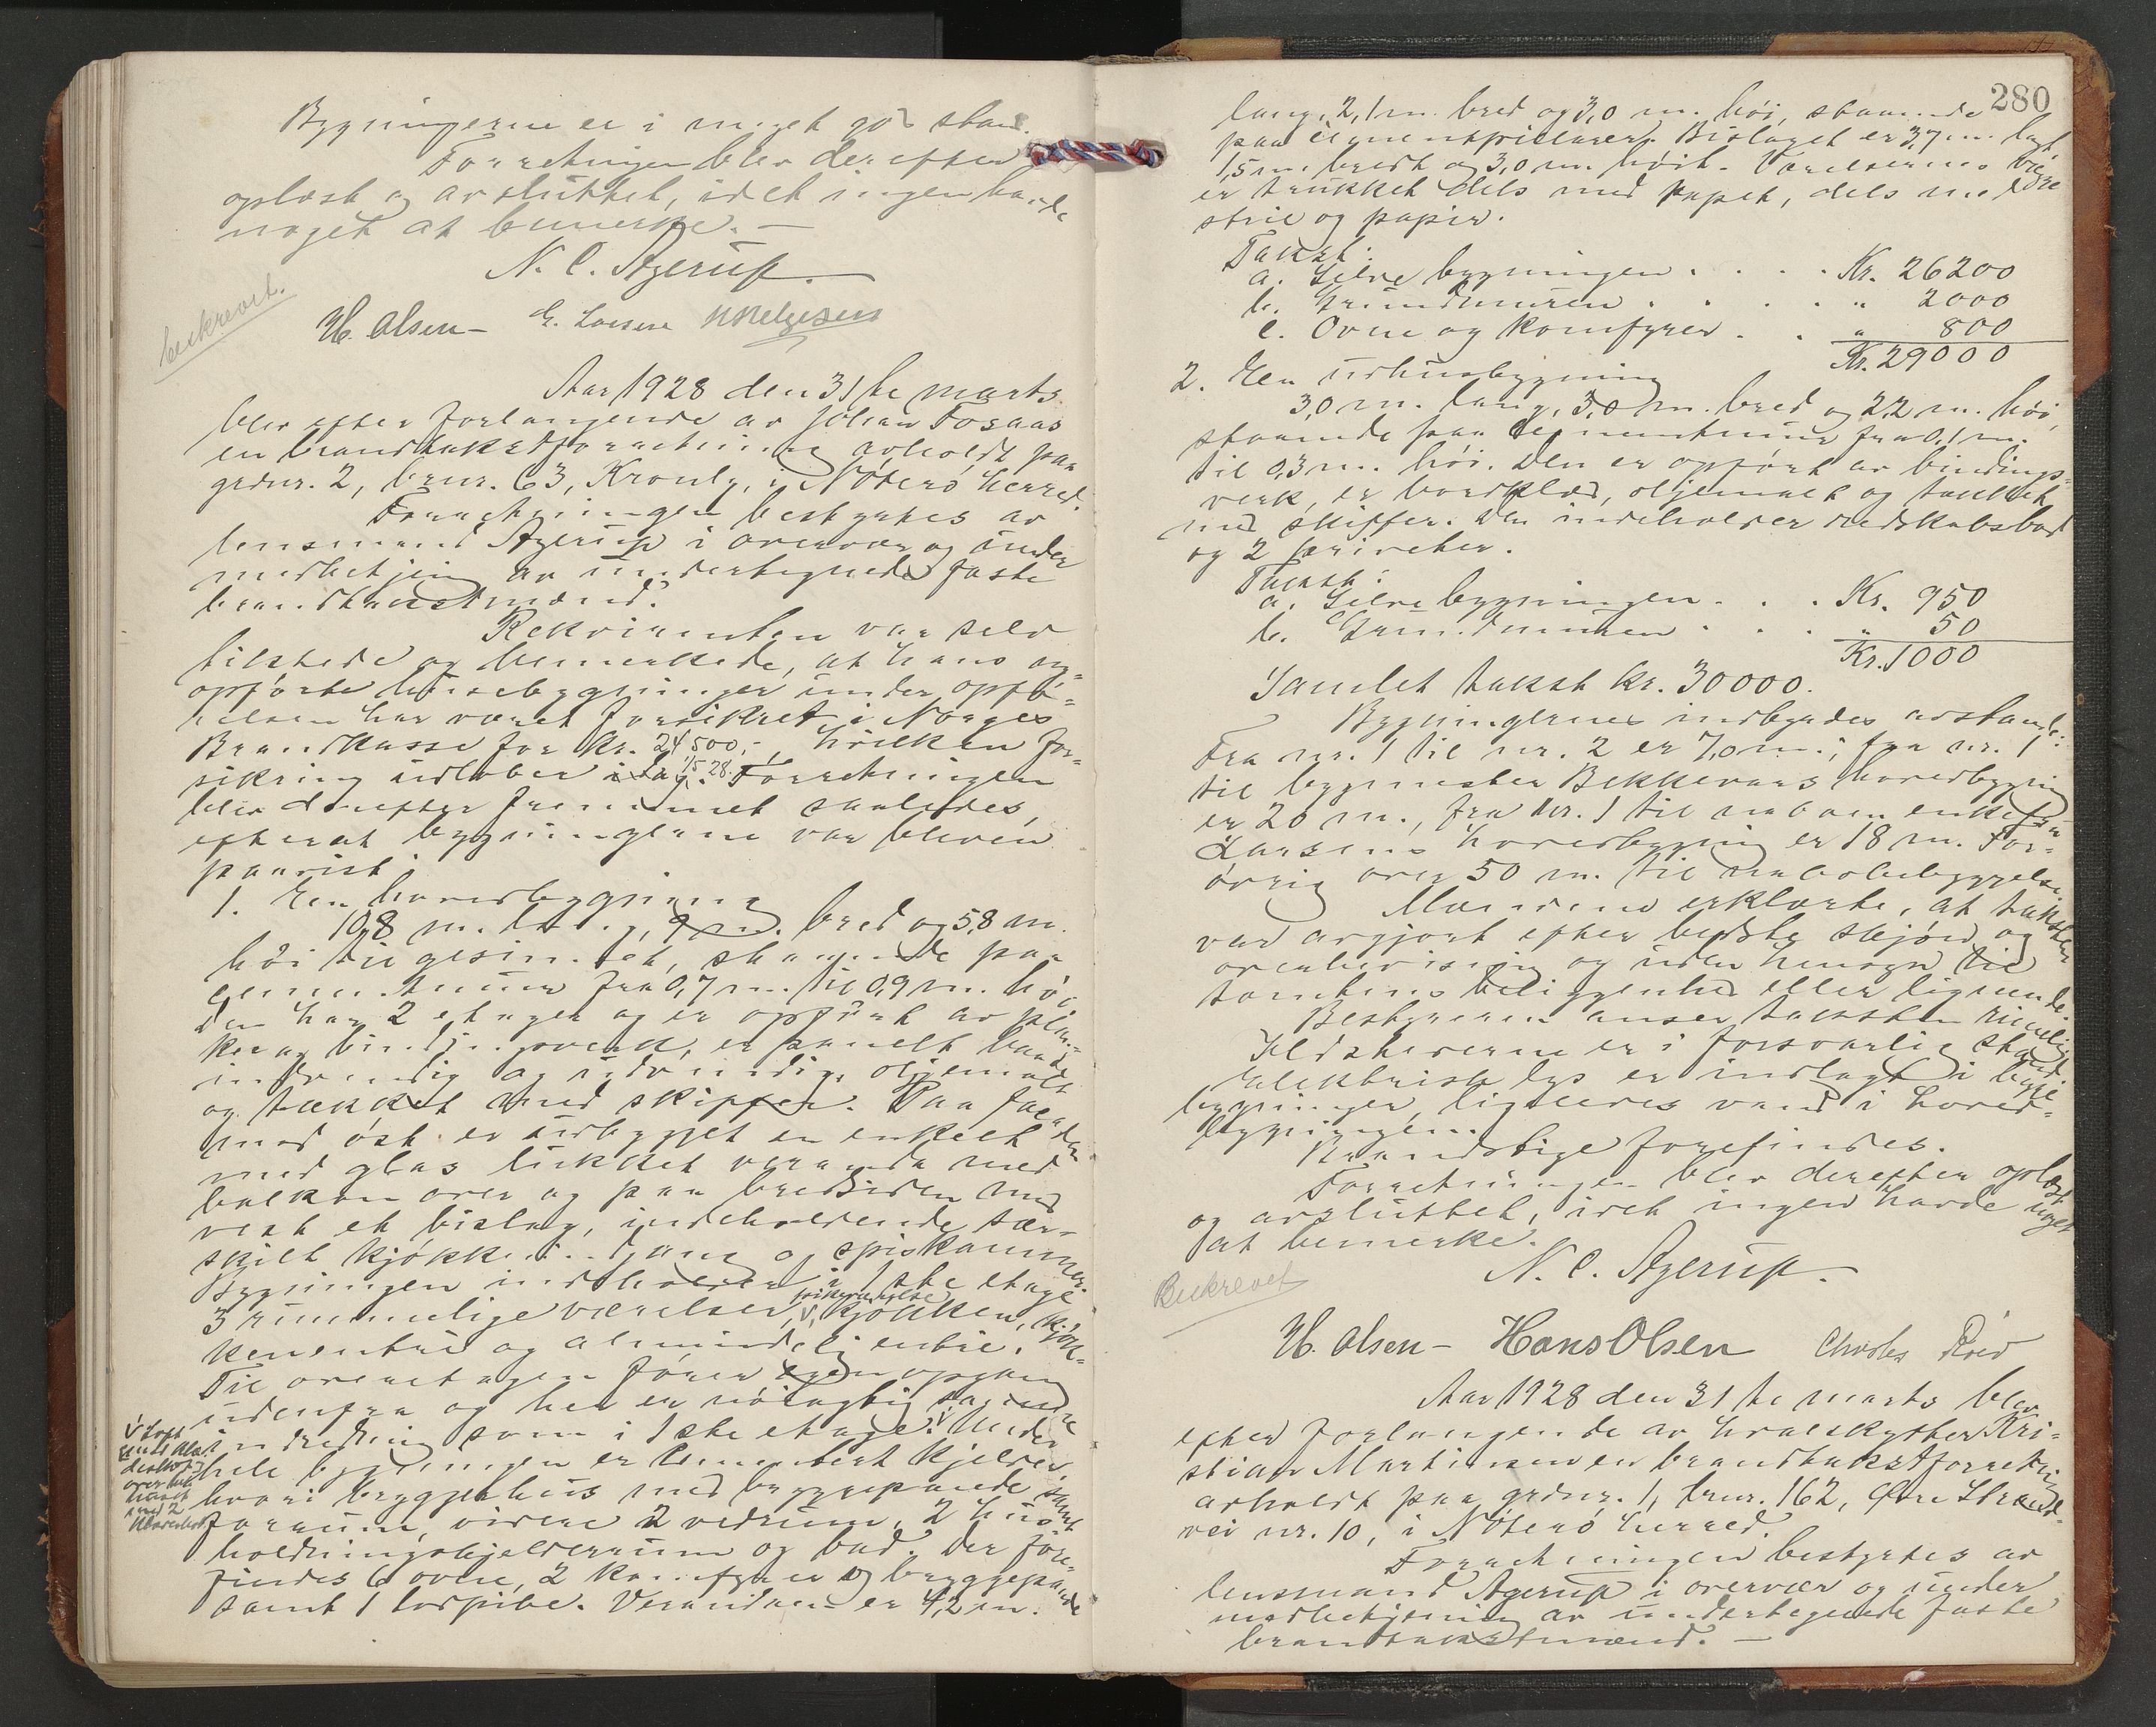 Bygningerne er i meget god stand.
Forretningen blev derefter
oplæst og avsluttet, idet ingen havde
noget at bemerke. —
N. C. Agerup.
bekrevet.
H. Olsen – E. Larsen
Aar 1928 den 31te marts
blev efter forlangende av Johan Fosaas
en brandtakstforretning avholdt paa
grdnr. 2, brnr. 63, Kronly, i Nøterø herred.
Forretningen bestyrtes av
lensmand Agerup i overvær og under
medbetjening av undertegnede faste
brandtakstmænd.
Rekvirenten var selv
tilstede og bemerkede, at hans ny-
opførte husebygninger under opfø-
relsen har været forsikret i Norges
Brandkasse for kr. 24500,-, hvilken for-
sikring utløber i dag. 1/5 28. Forretningen
blev derefter fremmet saaledes,
efterat bygningerne var bleven
paavist:
1. En hovedbygning
10,8 m. lang, 9 m. bred og 5,8 m.
høi til gesimset, staaende paa
cementmur fra 0,7 m. til 0,9 m. høi
Den har 2 etager og er opført av plan-
ker og bindingsverk, er panelt baade
indvendig og utvendig, oljemalt
og tækket med skiffer. Paa facaden
mod øst er utbygget en enkelt
med glas lukket veranda med
balkon over og paa bredsiden mod
vest et bislag, indeholdende sær-
skilt kjøkken. Gang og spiskammer.
Bygningen indeholder i 1ste etage
3 rummelige værelser, v, kjøkken, kjøk-
spiskammer
kenentre og almindelig entre.
Til overetagen fører egen opgang
utenfra og her er nøiagtig samme
indredning som i 1ste etage. v Under
v Loft
over hele
huset
med 2
hele bygningen er cementert kjelder,
hvori bryggerhus med bryggepande samt
forrum, videre 2 vedrum, 2 hus-
holdningskjelderrum og bad. Der fore-
findes 6 ovne, 2 komfyrer og bryggepande
samt 1 torpibe. Verandaen er 4,2 m.
280
lang, 2,1 m. bred og 3,0 m. høi, staaende
paa cementpillarer. Bislaget er 3,7 m. langt
1,5 m. bredt og 3,0 m. høit. Værelsernes vægge
er trukket dels med papet, dels med
strie og papir.
Takst:
a. Selve bygningen . . . . Kr. 26200
b. Grundmuren . . . . " 2000
c. Ovne og komfyrer . . " 800
Kr. 29000
2. En uthusbygning
3,0 m. lang, 3,0 m. bred og 2,2 m. høi,
staaende paa cementmur fra 0,1 m.
til 0,3 m. høi. Den er opført av bindings-
verk, er bordklæd, oljemalt og tækket
med skiffer. Den indeholder redskabsbod
og 2 priveter.
Takst:
a. Selve bygningen . . . Kr. 950
b. Grundmuren . . . " 50
Kr. 1000
Samlet takst kr. 30000.
Bygningernes indbyrdes avstand:
Fra nr. 1 til nr. 2 er 7,0 m., fra nr. 1
til bygmester Bekkevars hovedbygning
er 20 m., fra nr. 1 til naboen enkefru
Larsens hovedbygning er 18 m. For-
øvrig over 50 m. til nabobebyggelse
Mændene erklærte, at taksten
var avgjort efter bedste skjøn og
overbevisning og uten hensyn til
tomtens beliggenhed eller lignende.
Bestyreren anser taksten rimelig
Ildstederne er i forsvarlig stand.
Elektrisk lys er indlagt i begge
bygninger, ligeledes vand i hoved-
bygningen.
Brandstige forefindes.
Forretningen blev derefter oplæst
og avsluttet, idet ingen havde noget
at bemerke.
N. C. Agerup.
Bekrevet
H. Olsen – Hans Olsen Charles Röed
Aar 1928 den 31te marts blev
efter forlangende av hvalskytter Kri-
stian Martinsen en brandtakstforretning
avholdt paa grdnr. 1, brnr. 162, Øvre Strand-
vei nr. 10, i Nøterø herred.
Forretningen bestyrtes av
lensmand Agerup i overvær og under
medbetjening av undertegnede faste
brandtakstmænd. —